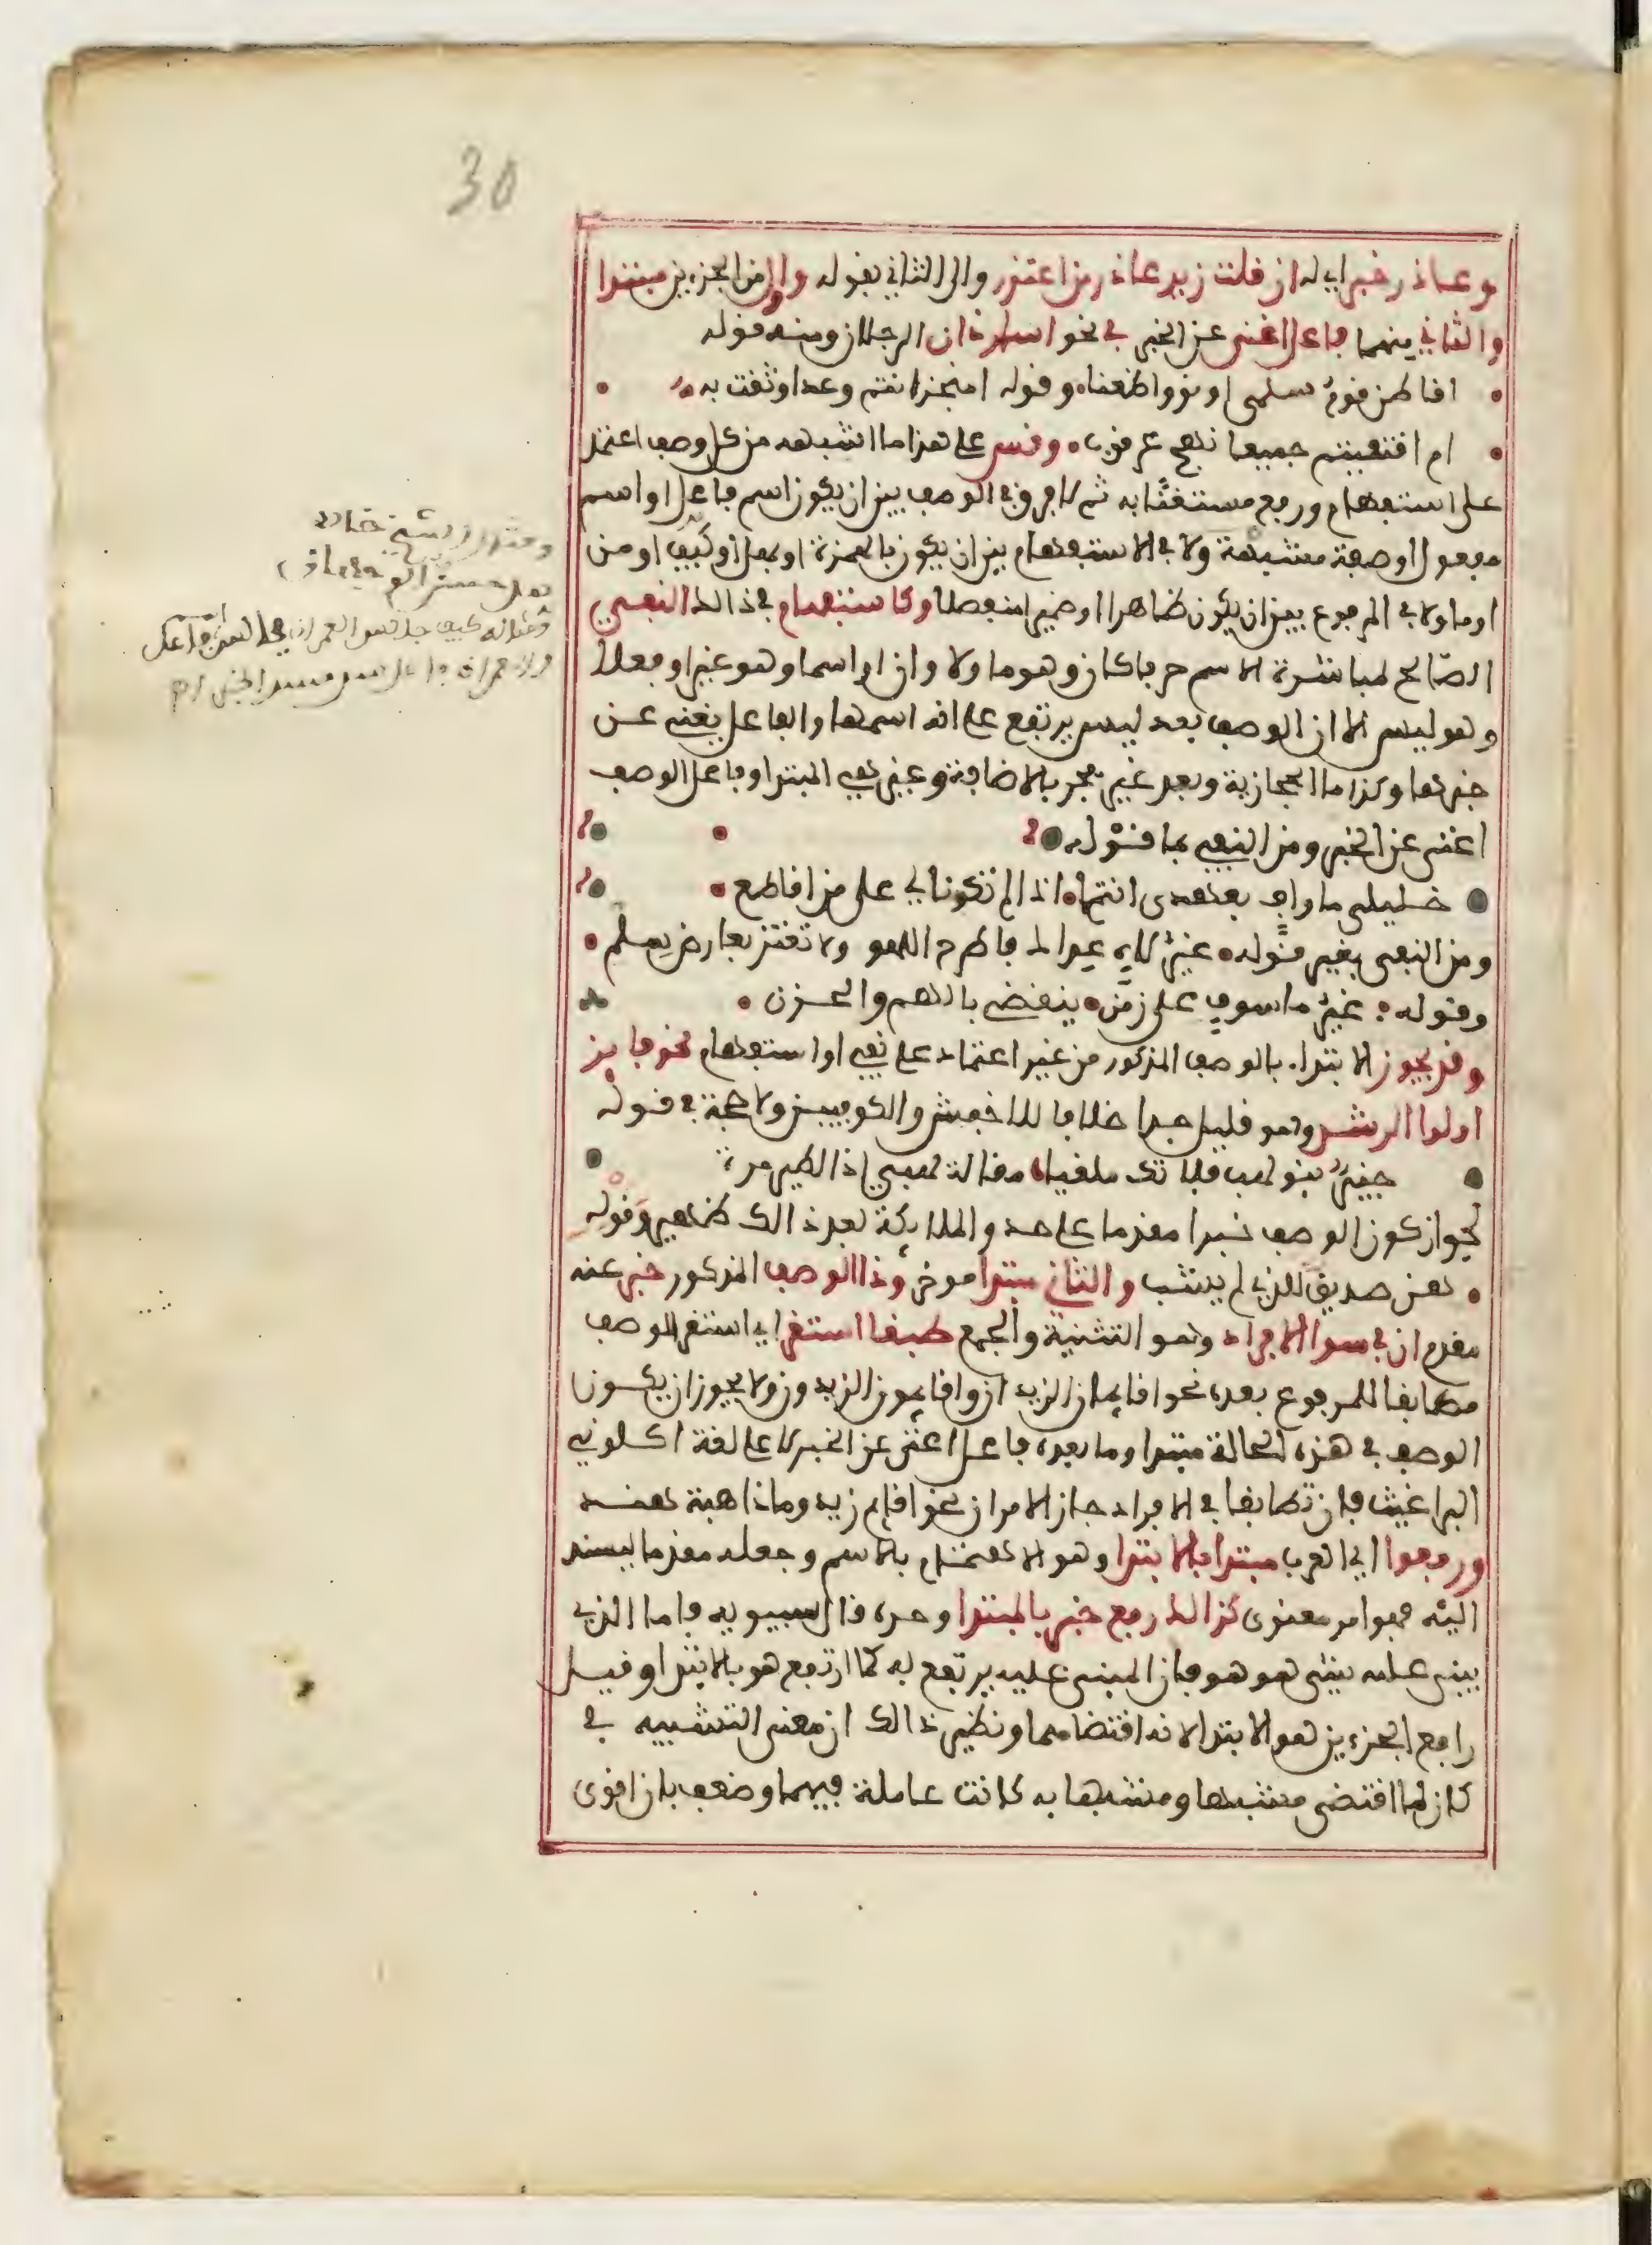 30
وعاذر خبر اي له ان قلت زيد عاذر من اعتذر والى الثاني بقوله واول من الجزءين مبتدا
والثاني منهما فاعل اغنى عن الخبر في نحو اسار ذان الرجلان ومنه قوله
اقاطن قوم سلمى ام نووا ظعنا وقوله امنجز انتم وعدا وثقت به
ام اقتفيتم جميعا نهج عرقوب وقس على هذا ما اشبهه من كل وصف اعتمد
على استفهام ورفع مستغنا به ثم لا فرق في الوصف بين ان يكون اسم فاعل او اسم
مفعول او صفة مشبهة ولا في الاستفهام بين ان يكون بالهمزة او بهل او كيف او من
او ما ولا في المرفوع بين ان يكون ظاهرا او ضميرا منفصلا وكاستفهام في ذالك النفي
الصالح لمباشرة الاسم حرفا كان وهو ما ولا وان او اسما وهو غير او فعلا
وهو ليس الا ان الوصف بعد ليس يرتفع على انه اسمها والفاعل يغني عن
خبرها وكذا ما الحجازية وبعد غير يجر بالاضافة وغير هي المبتدا وفاعل الوصف
اغنى عن الخبر ومن النفي بما قوله
خليلي ما واف بعهدي انتما اذا لم تكونا لي على من اقاطع
ومن النفي بغير قوله غير لاه عداك فاطرح اللهو ولا تغتر بعارض سلم
وقوله غير ماسوف على زمن ينقضي بالهم والحزن
وقد يجوز الابتداء بالوصف المذكور من غير اعتماد على نفي او استفهام نحو فايز
اولوا الرشد وهو قليل جدا خلافا للاخفش والكوفيين ولا حجة في قوله
خبير بنو لهب فلا تك ملغيا مقالة لهبي اذا الطير مرت
لجواز كون الوصف خبرا مقدما على حد والملايكة بعد ذالك ظهير وقوله
هن صديق للذي لم يشب والثاني مبتدا موخر وذا الوصف المذكور خبر عنه
مقدم ان في سوا الافراد وهو التثنية والجمع طبقا استقر اي استقر الوصف
مطابقا للمرفوع بعده نحو اقايمان الزيدان واقايمون الزيدون ولا يجوز ان يكون
الوصف في هذه الحالة مبتدا وما بعده فاعل اغنى عن الخبر الا على لغة اكلوني
البراغيث فان تطابقا في الافراد جاز الامران نحو اقايم زيد وما ذاهبة هند
ورفعوا اي العرب مبتدا بالابتدا وهو الاهتمام بالاسم وجعله مقدما ليسند
اليه فهو امر معنوي كذالك رفع خبر بالمبتدا وحده قال سيبويه فاما الذي
يبنى عليه شيء هو هو فان المبني عليه يرتفع به كما ارتفع هو بالابتدا وقيل
رافع الجزءين هو الابتدا لانه اقتضاهما ونظير ذالك ان معنى التشبيه في
كان لما اقتضى مشبها ومشبها به كانت عاملة فيهما وضعف بان اقوى